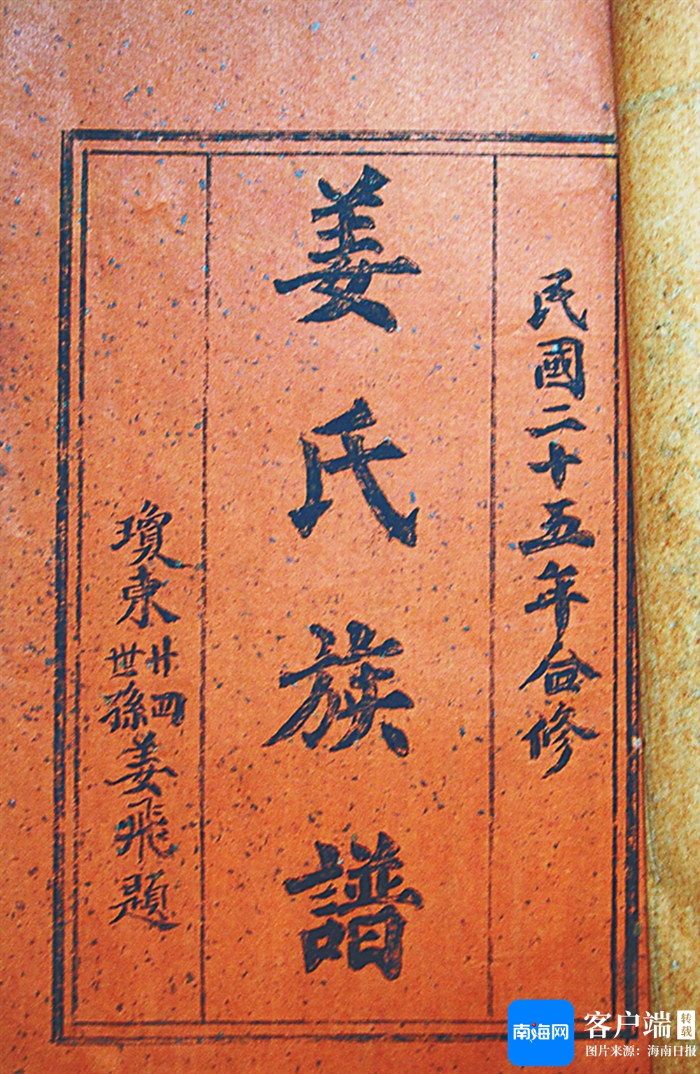 民國二十五年合修
姜氏族譜
瓊東廿四世孫姜飛題
南海网
客户端
转载
图片来源：海南日报